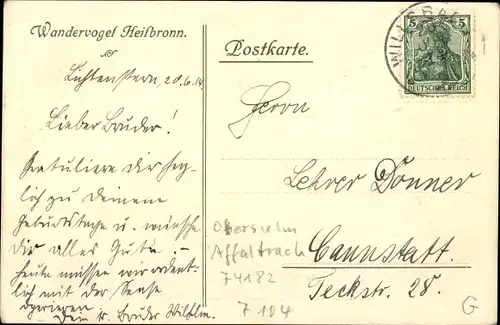 Wandervogel Heilbronn.
Lichtenstern, 20.6.14.
Lieber Bruder!
Gratuliere dir herz-
lich zu deinem
Geburtstage u. wünsche
dir alles Gute. –
Heute müssen wir ordent-
lich mit der Sense
operieren.
Dein tr. Bruder Wilhelm.
Postkarte.
WILLSBA
5 5
DEUTSCHES REICH
Herrn
Lehrer Donner
Cannstatt.
Teckstr. 28.
Obersulm
Affaltrach
74182
7104
G